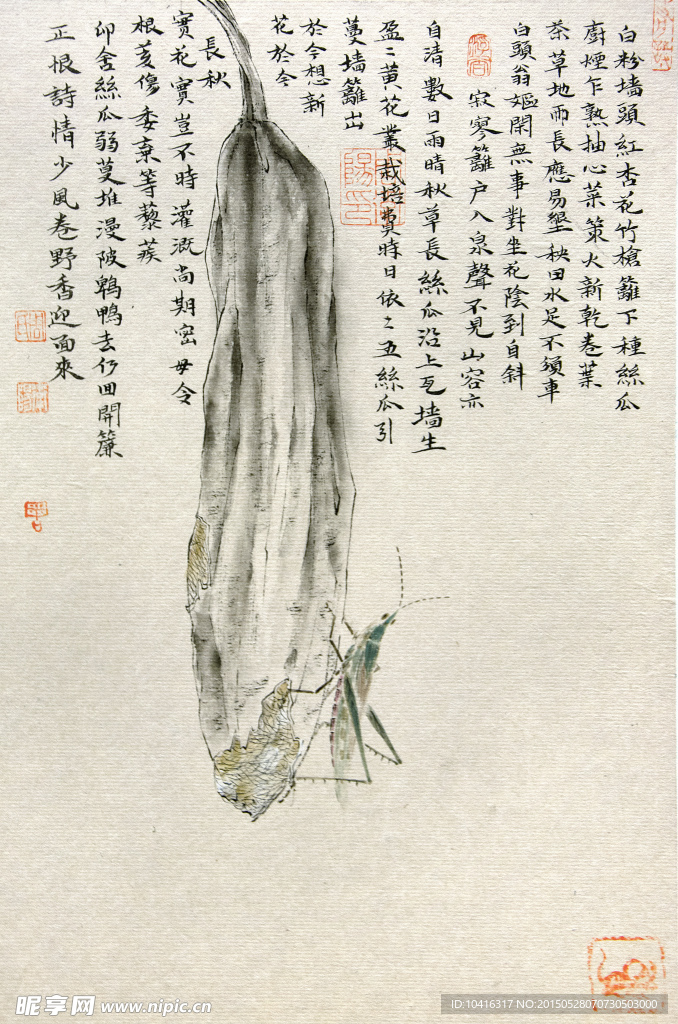 白粉墻頭紅杏花竹槍籬下種絲瓜
廚煙乍熟抽心菜篝火新乾卷葉
茶草地雨長應易墾秧田水足不須車
白頭翁嫗閑無事對坐花陰到自斜
寂寥籬户入泉聲不見山容亦
自清數日雨晴秋草長絲瓜沿上瓦墻生
盈盈黄花叢栽培費時日依依五絲瓜引
蔓墻籬出
於今想新
花於今
長秋
實花實豈不時灌溉尚期密毋令
根荄傷委棄等藜蒺
卯舍絲瓜弱蔓堆漫陂鵝鴨去仍回開簾
正恨詩情少風卷野香迎面來
昵享网 www.nipic.cn
ID:10416317 NO:20150528070730503000